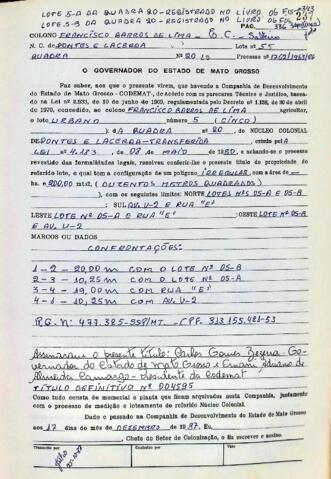 LOTE 5-A DA QUADRA 20-REGISTRADO NO LIVRO 06 FIS-343
LOTE 5-B DA QUADRA 20-REGISTRADO NO LIVRO 06 FIS
PAG. 336
COLONO FRANCISCO BARROS DE LIMA - E. C. - Solteiro
N. C. de PONTES E LACERDA Lote nº 55
QUADRA Nº 20 Processo nº
O GOVERNADOR DO ESTADO DE MATO GROSSO
Faz saber, aos que o presente virem, que havendo a Companhia de Desenvolvimento
do Estado de Mato Grosso - CODEMAT, de acordo com os pareceres Técnico e Jurídico, baseados
na Lei nº 2.933, de 10 de junho de 1969, regulamentada pelo Decreto nº 1.138, de 30 de abril
de 1970, concedido, ao colono FRANCISCO BARROS DE LIMA agricultor,
o lote URBANO número 5 (CINCO)
da QUADRA Nº 20, DE NÚCLEO COLONIAL
DE PONTES E LACERDA-TRANSFERIDA criado pela
LEI 4.183 de 08 MAIO de 1980, e achando-se o processo
revestido das formalidades legais, resolveu conferir-lhe o presente título de propriedade do
referido lote, e que tem a configuração de um polígono IRREGULAR com a área de
hs e 200,00 mts2. (DUZENTOS METROS QUADRADOS)
com os seguintes limites: NORTE LOTES Nºs 05-A E 05-B
SUL AV. U-2 E RUA "E"
LESTE LOTE Nº 05-A E RUA "E" OESTE LOTE Nº 05-B
E AV. U-2
MARCOS OU DADOS
CONFRONTAÇÕES:
1 - 2 - 20,00 m COM O LOTE Nº 05-B
2 - 3 - 10,25 m COM O LOTE Nº 05-A
3 - 4 - 19,00 m COM RUA "E"
4 - 1 - 10,25 m COM AV. U-2
R.G. Nº 477.385-SSP/MT. - CPF. 313.155.481-53
Assinaram o presente título: Carlos Gomes Bezerra - Go-
vernador do Estado de Mato Grosso e Ernani Adriano de
Almeida Camargo - Presidente da Codemat
TÍTULO DEFINITIVO Nº 004595
Como tudo consta de memorial e planta que ficam arquivados nesta Companhia, juntamente
com o processo de medição e loteamento do referido Núcleo Colonial.
Dado e passado na Companhia de Desenvolvimento do Estado de Mato Grosso
aos 17 dias do mês de DEZEMBRO de 1987, Eu,
Chefe do Setor de Colonização, o fiz escrever e assino.